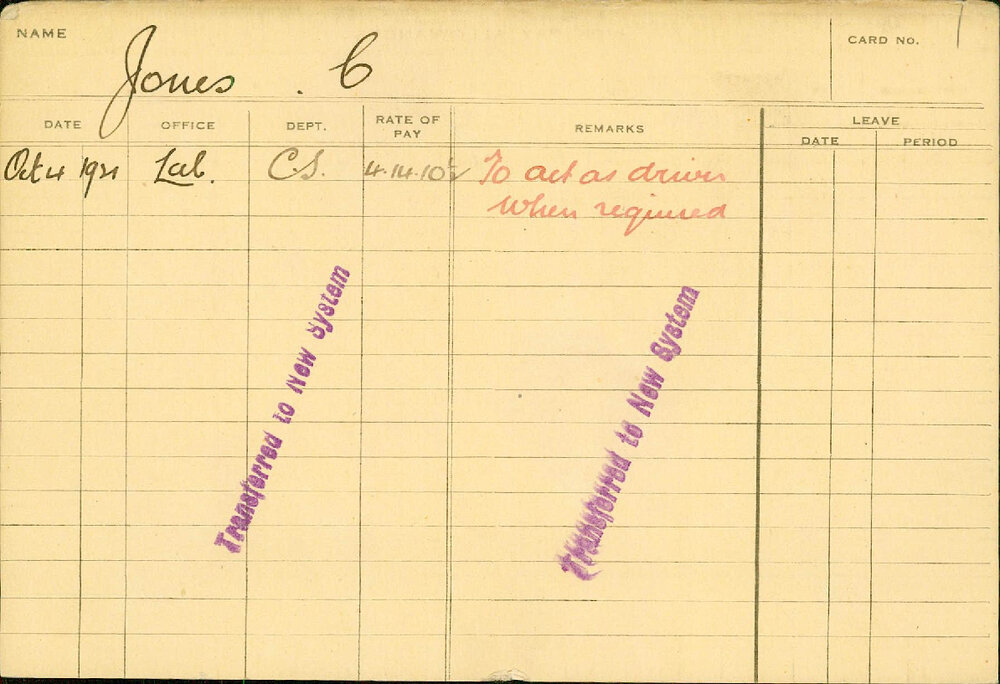 NAME
Jones . C
CARD No.
DATE OFFICE DEPT. RATE OF PAY REMARKS LEAVE
DATE PERIOD
Oct 4 1921 Lab. C.S. 4.14.10½ To act as driver
when required
Transferred to New System
Transferred to New System